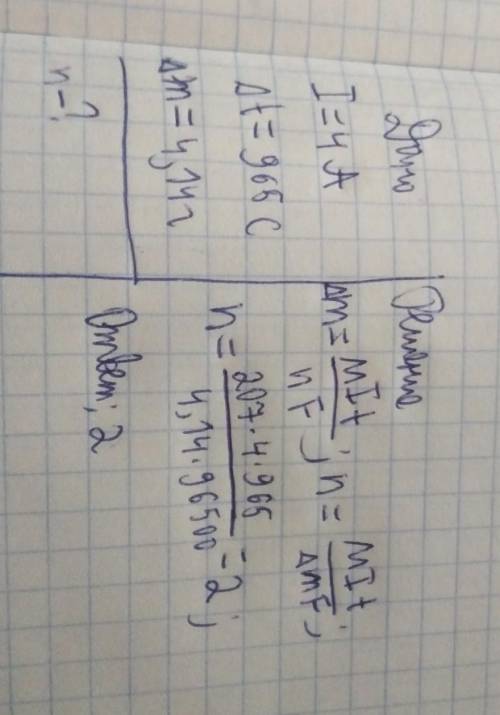 Дано
I = 4 A
Δt = 966 C
Δm = 4,14 г
n - ?
Решение
Δm = MIt / nF ; n = MIt / ΔmF ;
n = 207·4·966 / 4,14·96500 = 2 ;
Ответ: 2